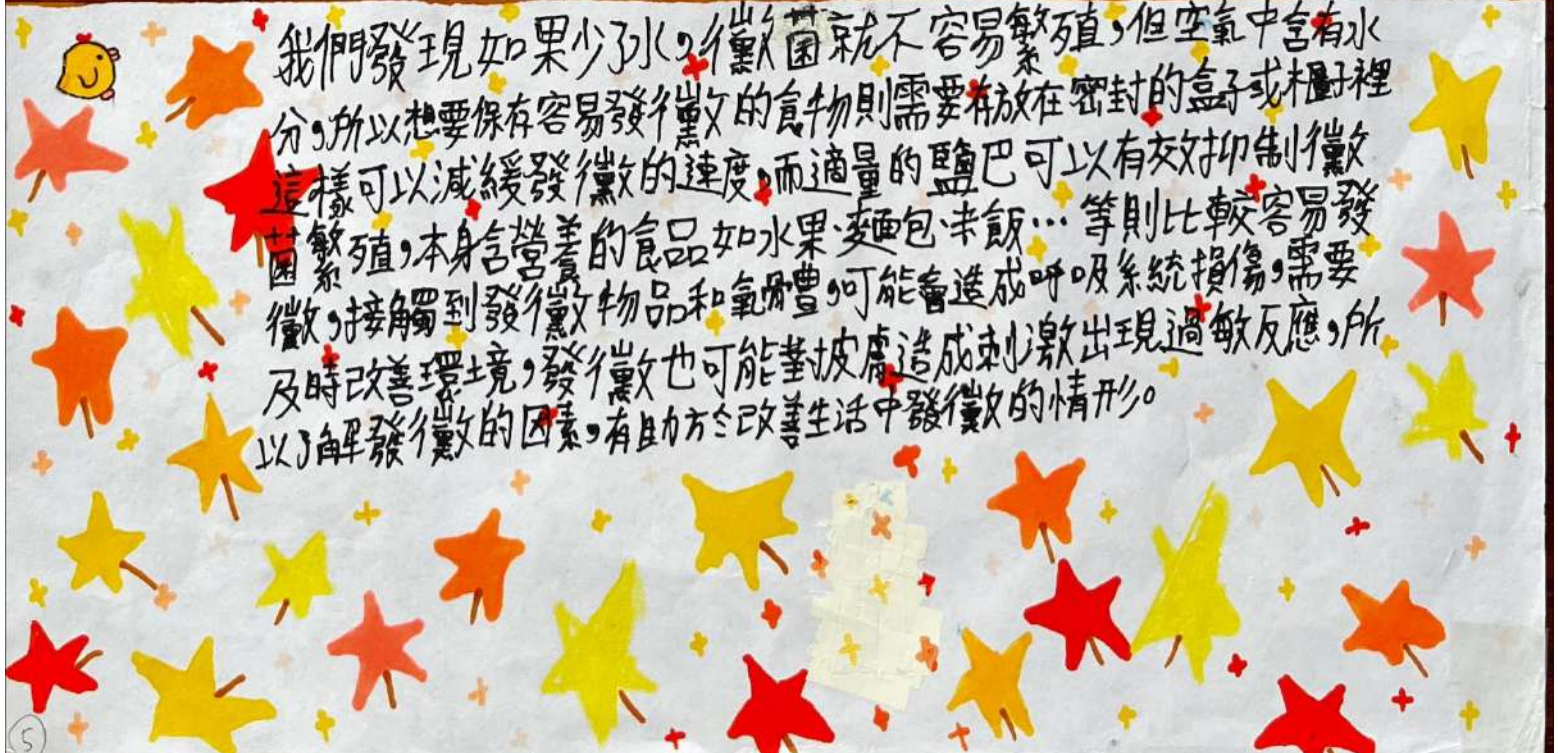 我們發現如果少了水,黴菌就不容易繁殖,但空氣中含有水
分,所以想要保存容易發黴的食物則需要存放在密封的盒子或櫃子裡
這樣可以減緩發黴的速度,而適量的鹽巴可以有效抑制黴
菌繁殖,本身含營養的食品如水果、麵包、米飯…等則比較容易發
黴,接觸到發黴物品和氣體,可能會造成呼吸系統損傷,需要
及時改善環境,發黴也可能對皮膚造成刺激出現過敏反應,所
以了解發黴的因素,有助於改善生活中發黴的情形。
5